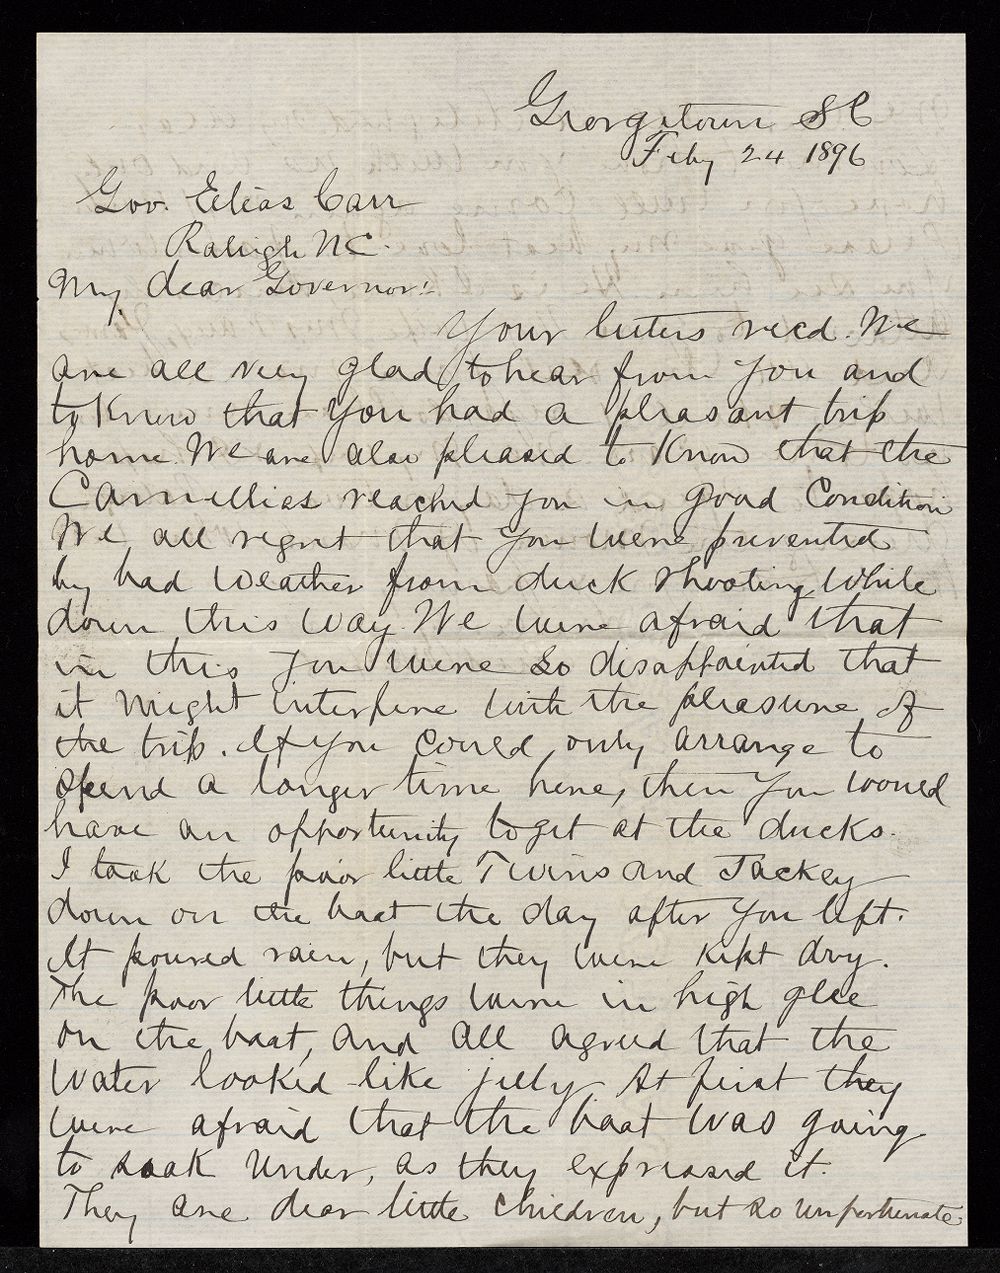 Georgetown S C
Feby 24 1896
Gov. Elias Carr
Raleigh NC.
My dear Governor:
Your letters recd. We
are all very glad to hear from you and
to know that you had a pleasant trip
home. We are also pleased to know that the
Camellias reached you in good condition
We all regret that you were prevented
by bad weather from duck shooting while
down this way. We were afraid that
in this you were so disappointed that
it might interfere with the pleasure of
the trip. If you could only arrange to
spend a longer time here, then you would
have an opportunity to get at the ducks.
I took the poor little Twins and Jackey
down on the boat the day after you left.
It poured rain, but they were kept dry.
The poor little things were in high glee
on the boat, and all agreed that the
water looked like jelly. At first they
were afraid that the boat was going
to soak under, as they expressed it.
They are dear little children, but so unfortunate